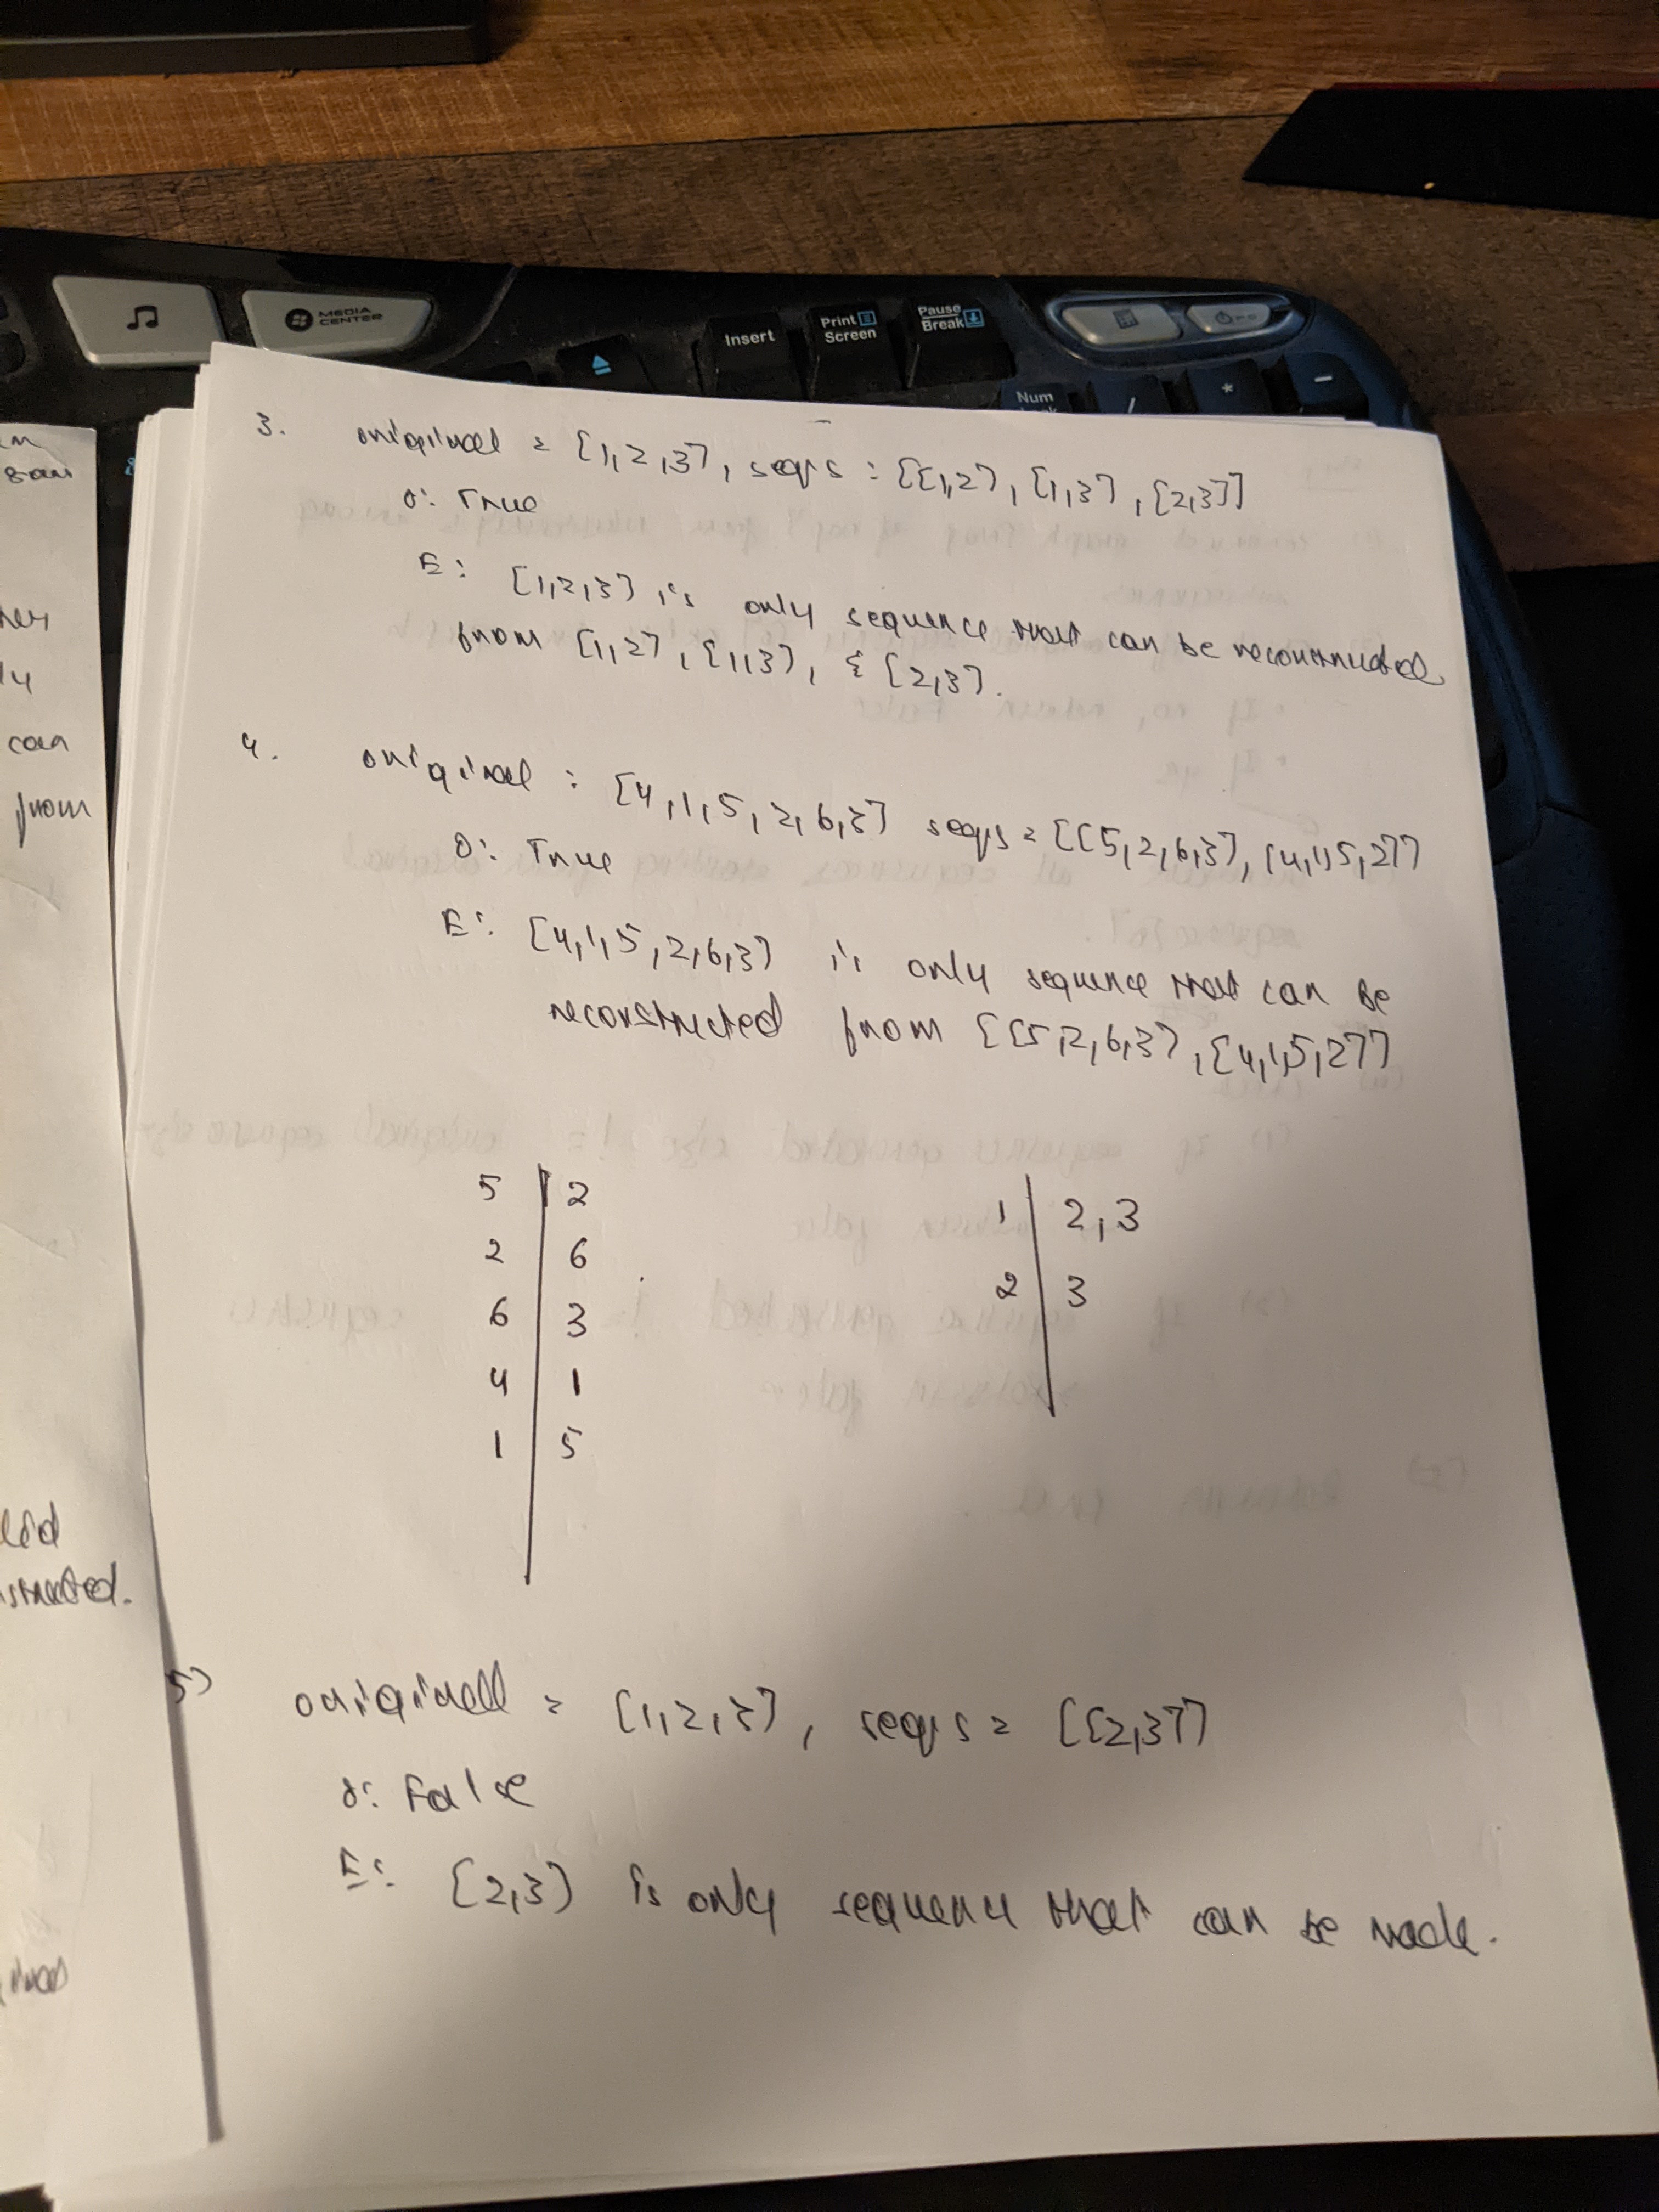 MEDIA CENTER
Insert
Print Screen
Pause Break
Num
/
*
-
3. original = [1,2,3], seqs : [[1,2], [1,3], [2,3]]
O: True
E: [1,2,3] is only sequence that can be reconstructed
from [1,2], [1,3], & [2,3].
4. original : [4,1,5,2,6,3] seqs = [[5,2,6,3], [4,1,5,2]]
O: True
E: [4,1,5,2,6,3] is only sequence that can be
reconstructed from [[5,2,6,3], [4,1,5,2]]
5 | 2
2 | 6
6 | 3
4 | 1
1 | 5
1 | 2,3
2 | 3
5) original = [1,2,3], seqs = [[2,3]]
O: False
E: [2,3] is only sequence that can be made.
can
from